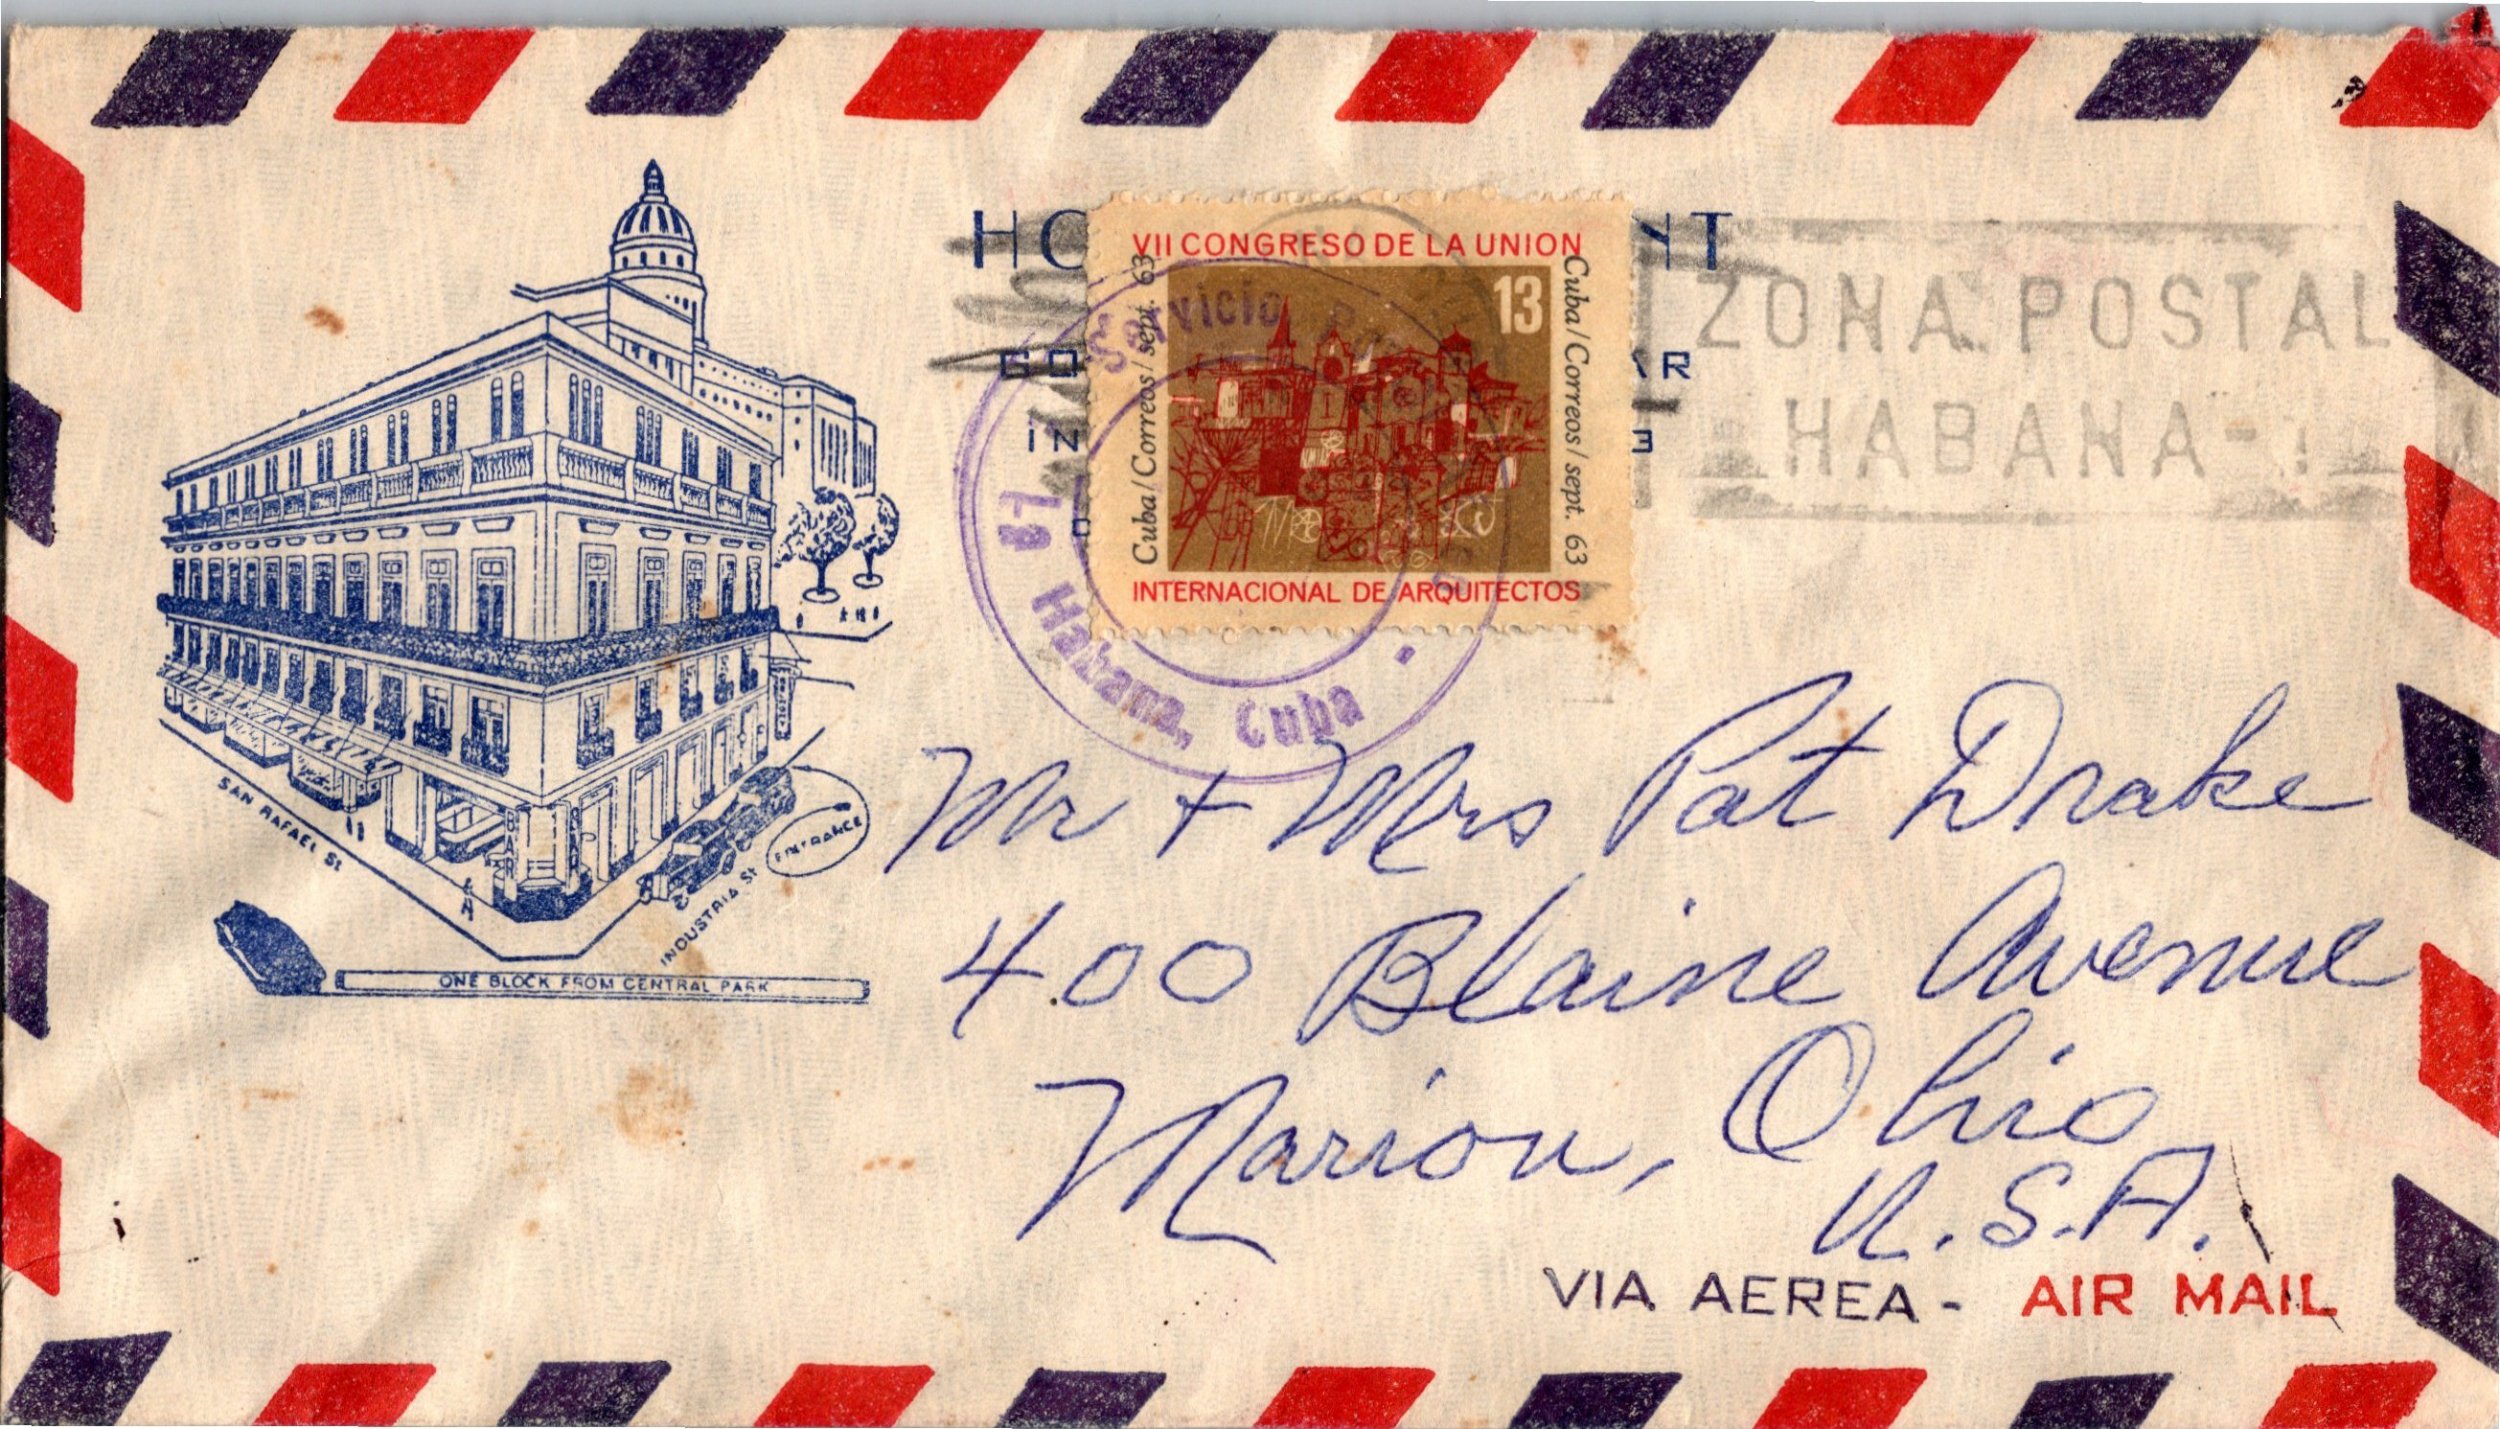 VII CONGRESO DE LA UNION
13
Cuba/Correos/sept. 63
Cuba/Correos/sept. 63
INTERNACIONAL DE ARQUITECTOS
Servicio
Habana, Cuba
ZONA POSTAL
HABANA-1
BAR
BAR
SAN RAFAEL St
INDUSTRIA St
ENTRANCE
ONE BLOCK FROM CENTRAL PARK
Mr + Mrs Pat Drake
400 Blaine Avenue
Marion, Ohio
U.S.A.
VIA AEREA - AIR MAIL